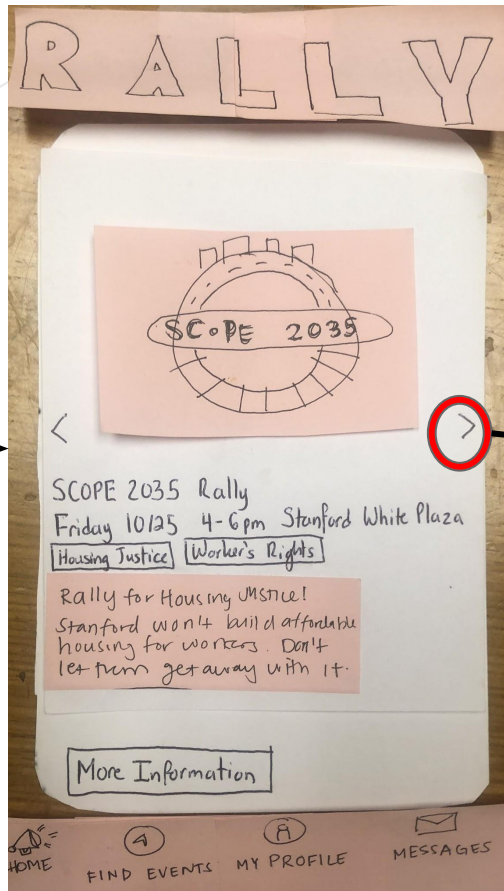 RALLY
SCOPE 2035
<
>
SCOPE 2035 Rally
Friday 10/25 4-6pm Stanford White Plaza
Housing Justice Worker's Rights
Rally for Housing Justice!
Stanford won't build affordable
housing for workers. Don't
let them get away with it.
More Information
HOME FIND EVENTS MY PROFILE MESSAGES